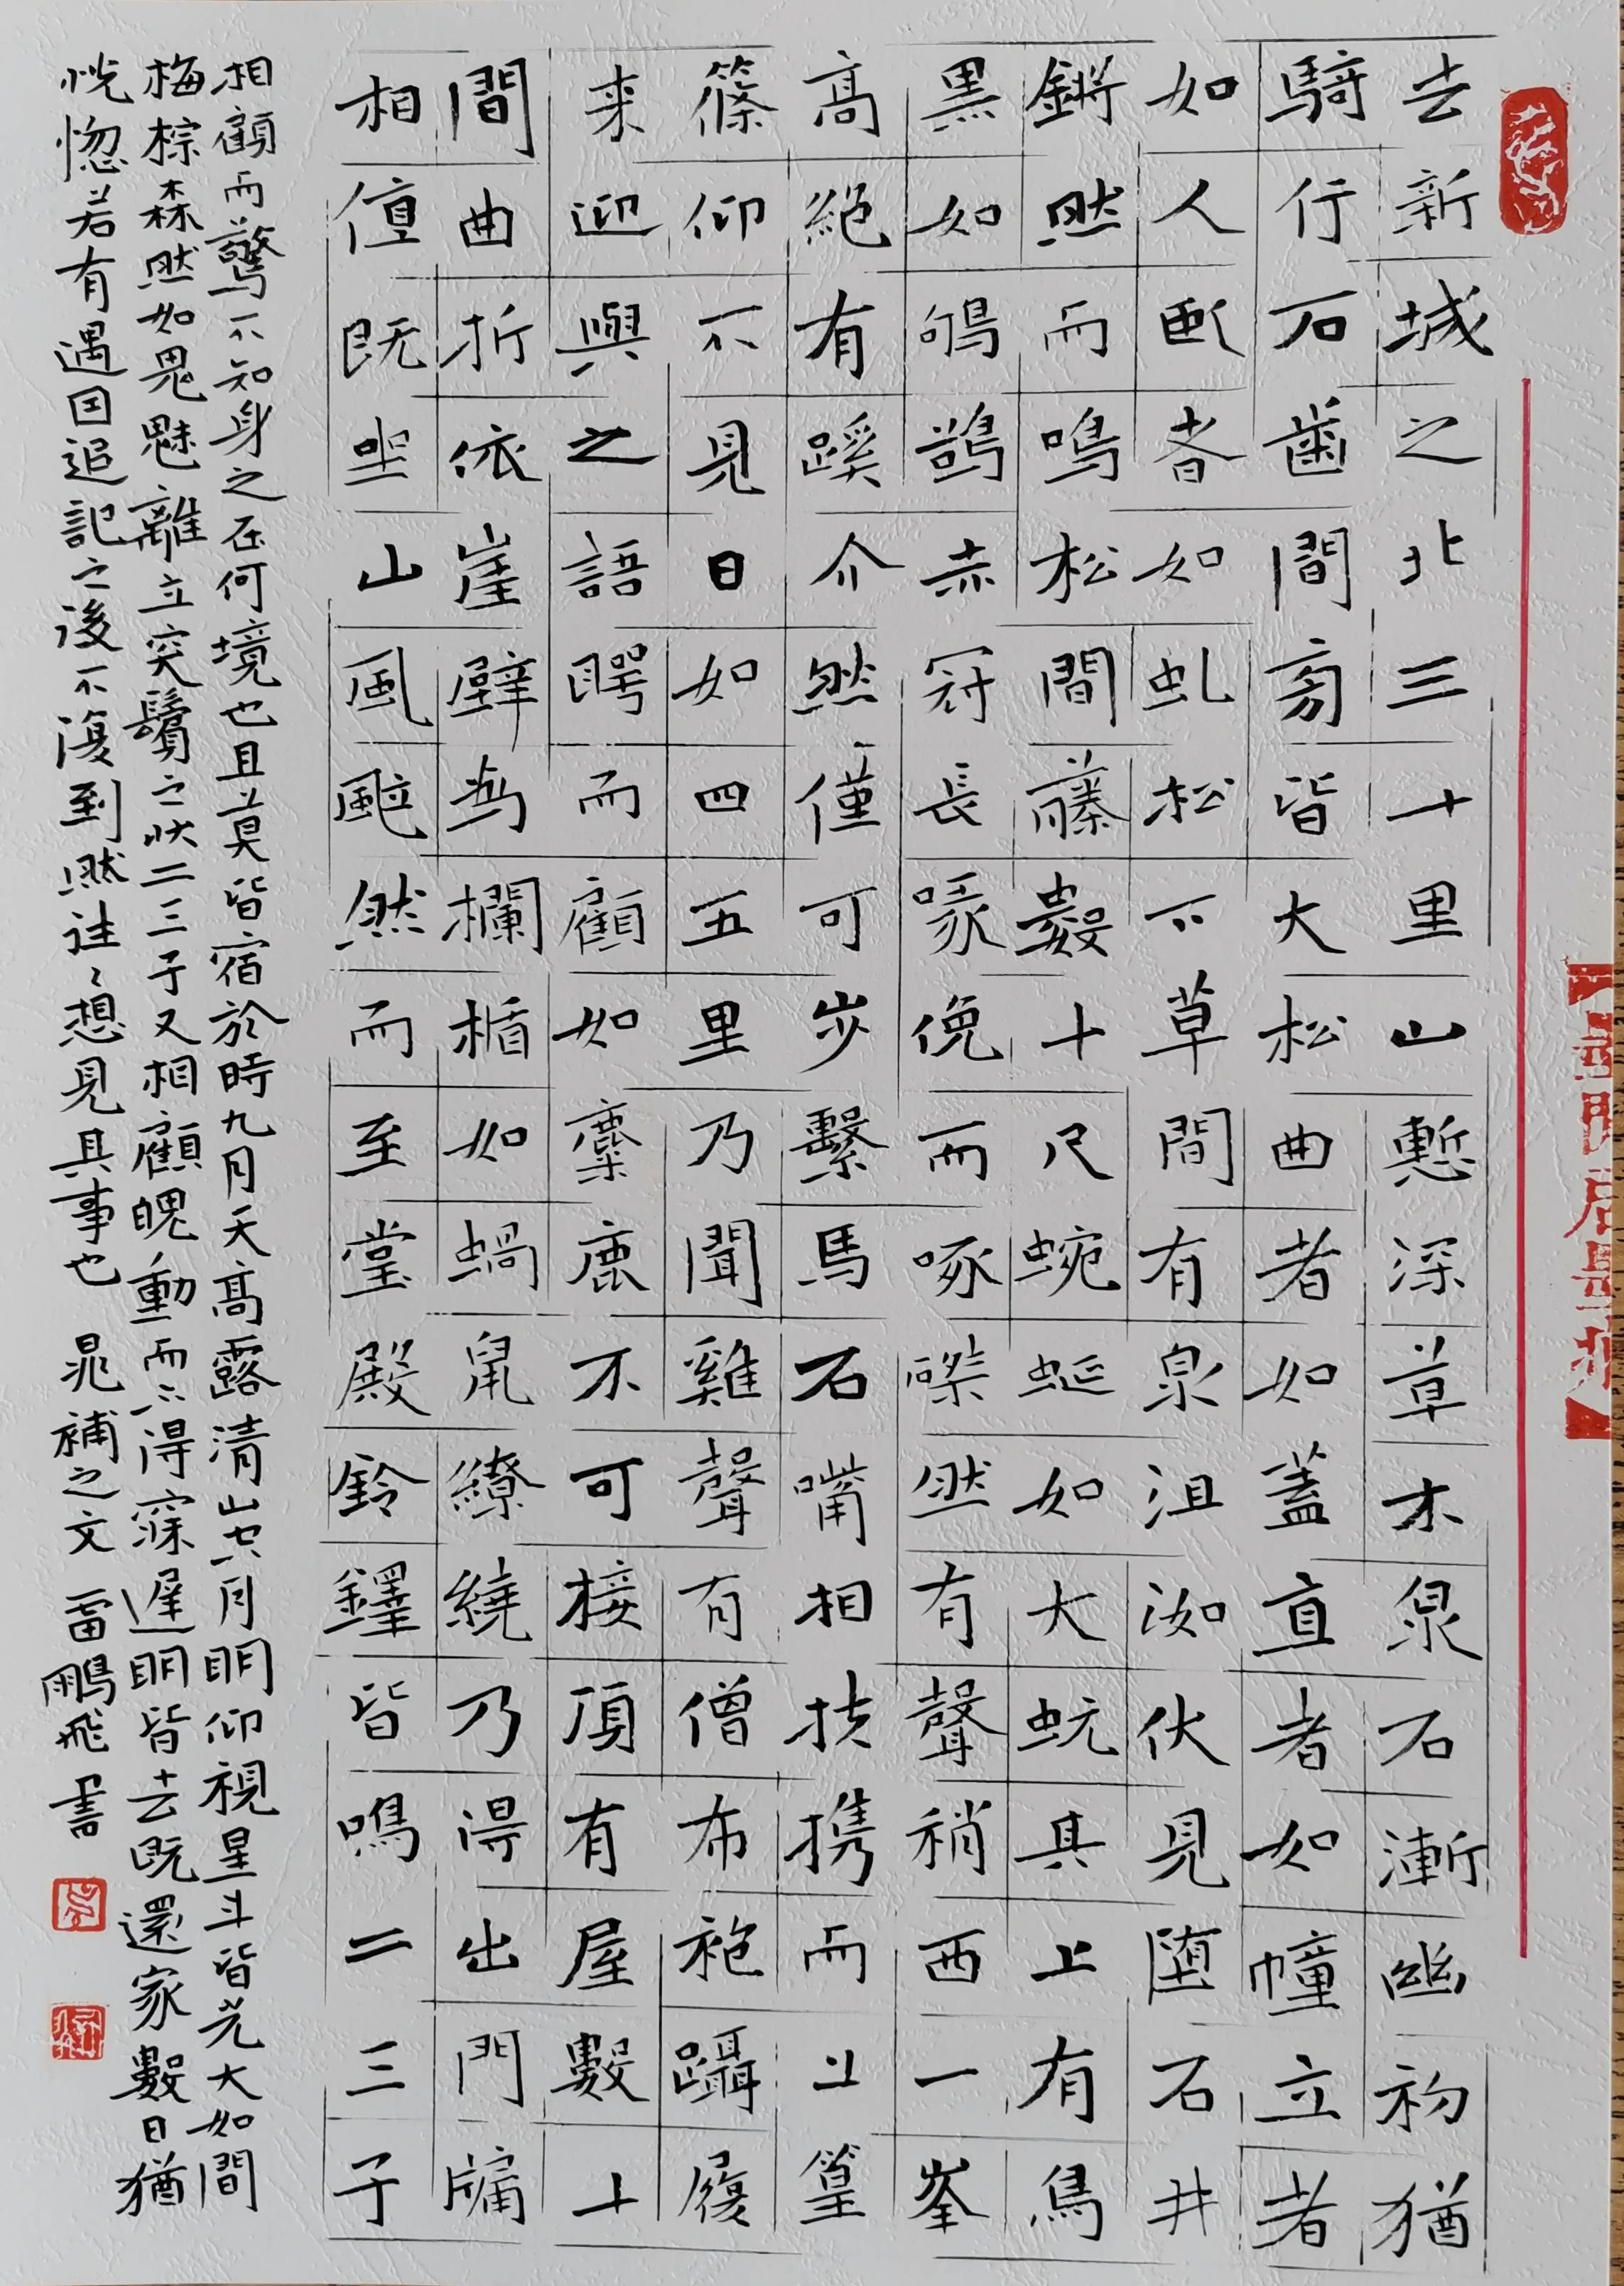 去新城之北三十里山慙深草木泉石漸幽初猶
騎行石齒間旁皆大松曲者如蓋直者如幢立者
如人臥者如虬松下草間有泉沮洳伏見堕石井
鏘然而鳴松間藤數十尺蜿蜒如大蚖其上有鳥
黑如鴝鵒赤冠長喙俛而啄磔然有聲稍西一峯
高絕有蹊介然僅可步繫馬石嘴相扶携而上篁
篠仰不見日如四五里乃聞雞聲有僧布袍躡履
来迎與之語愕而顧如麋鹿不可接頂有屋數十
間曲折依崖壁為欄楯如蝸鼠繚繞乃得出門牖
相值既坐山風颯然而至堂殿鈴鐸皆鳴二三子
相顧而驚不知身之在何境也且莫皆宿於時九月天高露清山空月明仰視星斗皆光大如間
梅棕森然如鬼魅離立突鬢之狀二三子又相顧魄動而不得寐遲明皆去既還家數日猶
恍惚若有遇因追記之後不復到然往〻想見其事也 晁補之文 雷鵬飛書